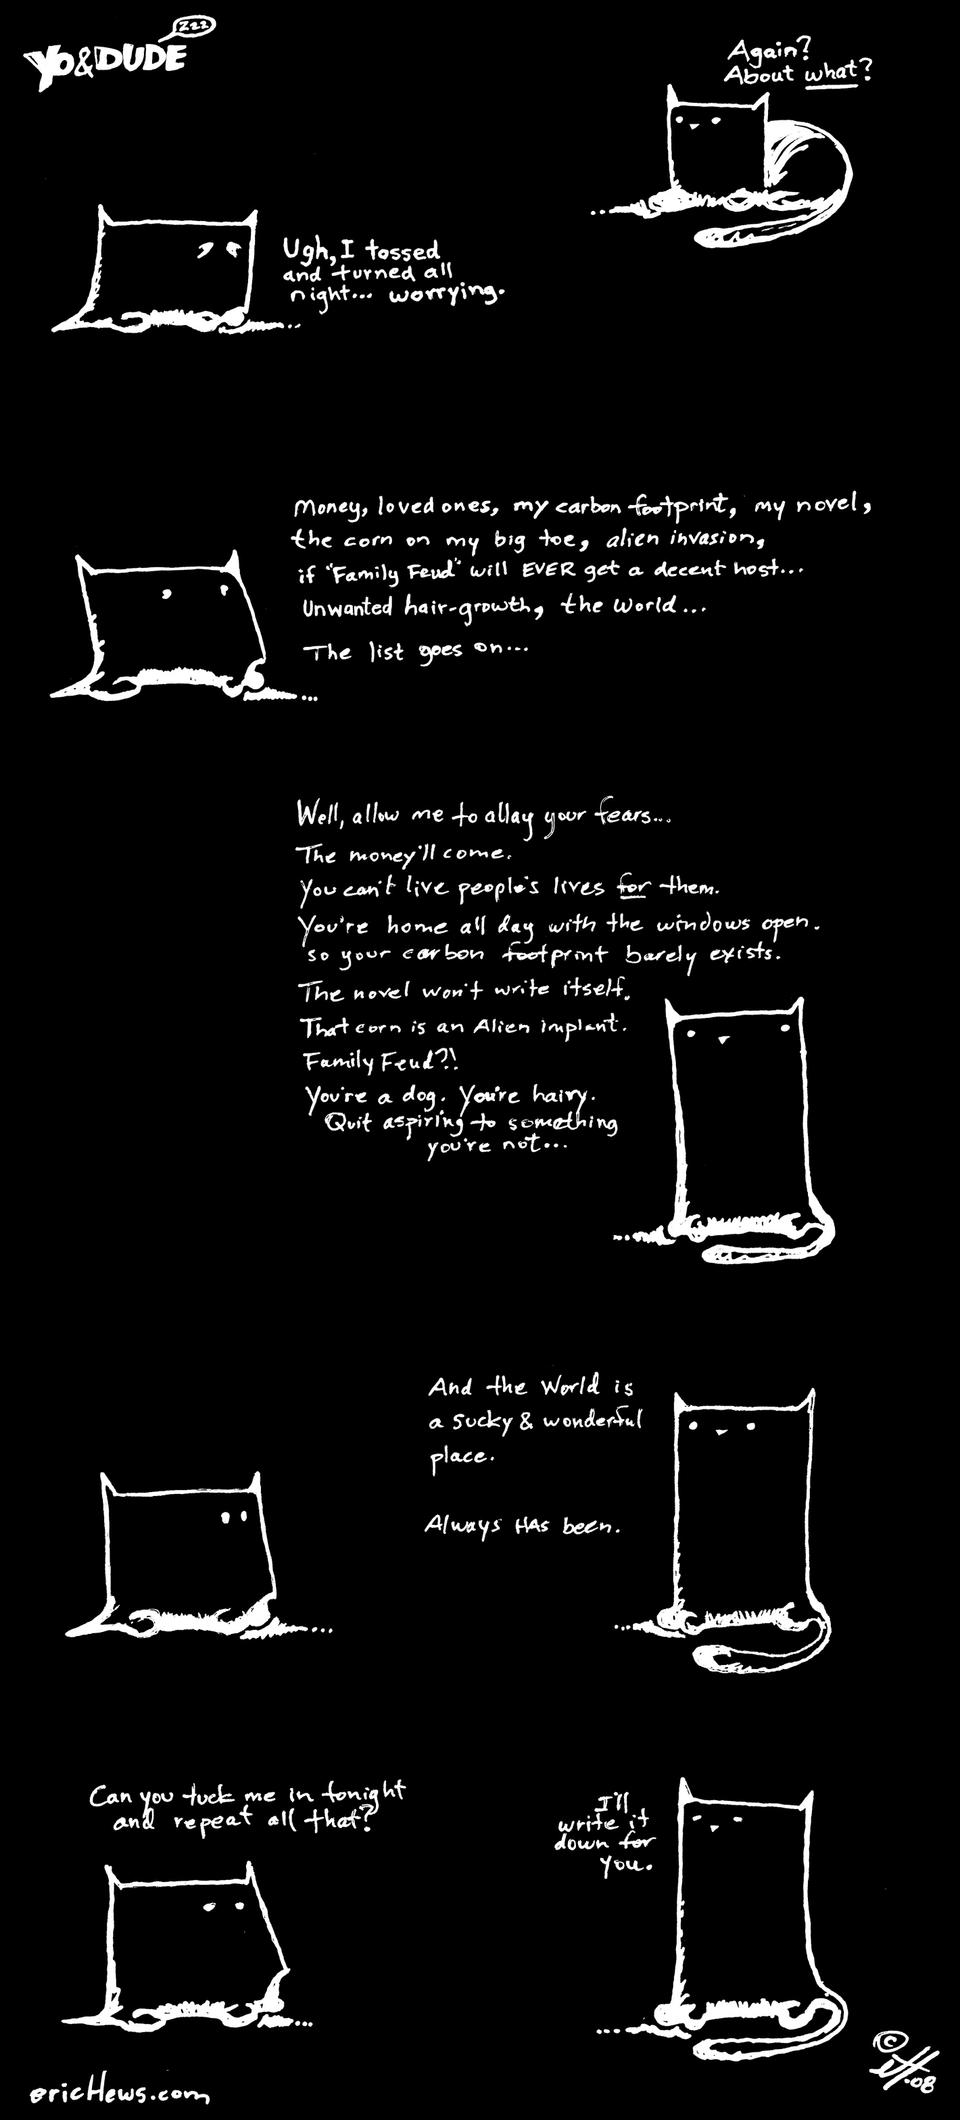 Zzz
YO&DUDE
Again?
About what?
Ugh, I tossed
and turned all
night... worrying.
Money, loved ones, my carbon footprint, my novel,
the corn on my big toe, alien invasion,
if "Family Feud" will EVER get a decent host...
Unwanted hair-growth, the world...
The list goes on...
Well, allow me to allay your fears...
The money'll come.
You can't live people's lives for them.
You're home all day with the windows open.
so your carbon footprint barely exists.
The novel won't write itself.
That corn is an Alien implant.
Family Feud?!
You're a dog. You're hairy.
Quit aspiring to something
you're not...
And the World is
a sucky & wonderful
place.
Always HAs been.
Can you tuck me in tonight
and repeat all that?
I'll
write it
down for
you.
© eH.08
ericHews.com